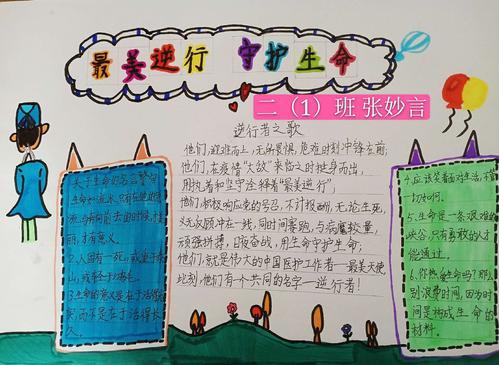 最美逆行 守护生命
二（1）班 张妙言
逆行者之歌
他们,迎难而上,无所畏惧,危难时刻冲锋在前;
他们,在疫情"大敌"来临之时挺身而出,
用执着和坚守诠释着"最美逆行",
他们,积极响应党的号召,不计报酬,无论生死,
义无反顾冲在一线,同时间赛跑,与病魔较量,
顽强拼搏,日夜奋战,用生命守护生命;
他们,就是伟大的中国医护工作者—最美天使
此刻,他们有个共同的名字—逆行者!
关于生命的名言警句
2.人固有一死,或重于泰
山,或轻于鸿毛.
3.生命的意义是在于活得充
实,而不是在于活得长
久.
4.应该笑着面对生活,不管
一切如何.
5.生命是一条艰难的
峡谷,只有勇敢的人才
能通过.
6.你热爱生命吗?那么
别浪费时间,因为时
间是构成生命的
材料.